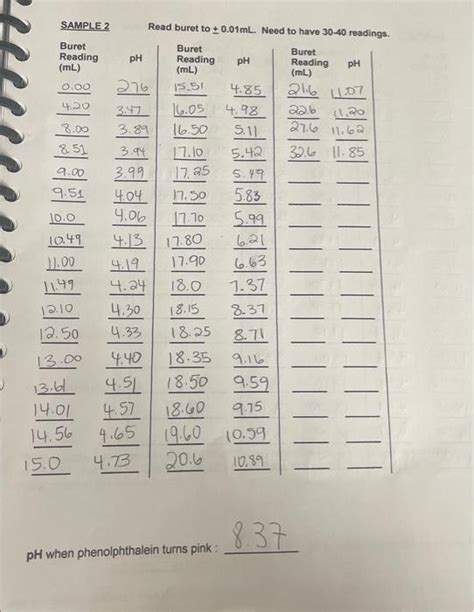 SAMPLE 2 Read buret to ± 0.01mL. Need to have 30-40 readings.
Buret Buret Buret
Reading pH Reading pH Reading pH
(mL) (mL) (mL)
0.00 2.76 15.51 4.85 21.6 11.07
4.20 3.47 16.05 4.98 22.6 11.20
8.00 3.89 16.50 5.11 27.6 11.62
8.51 3.94 17.10 5.42 32.6 11.85
9.00 3.99 17.25 5.49
9.51 4.04 17.50 5.83
10.0 4.06 17.70 5.99
10.49 4.13 17.80 6.21
11.00 4.19 17.90 6.63
11.49 4.24 18.0 7.37
12.10 4.30 18.15 8.37
12.50 4.33 18.25 8.71
13.00 4.40 18.35 9.16
13.61 4.51 18.50 9.59
14.01 4.57 18.60 9.75
14.56 4.65 19.60 10.59
15.0 4.73 20.6 10.89
pH when phenolphthalein turns pink : 8.37